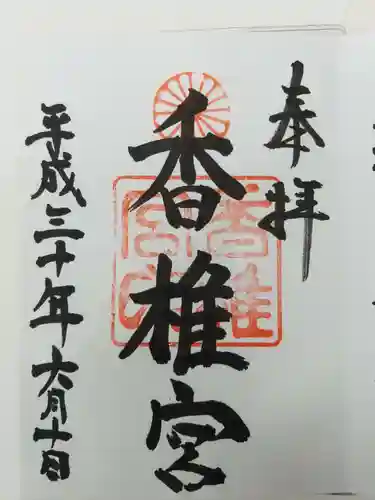 奉拝
香椎宮
平成三十年六月十日